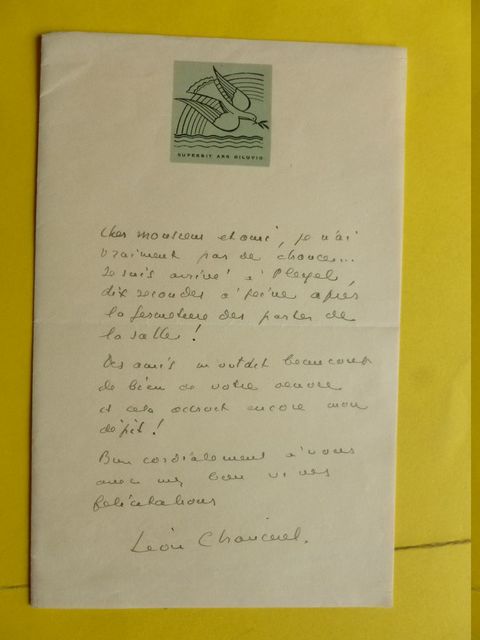 SUPEREIT ARS DILUVIO
Cher monsieur et ami, je n'ai
vraiment pas de chance...
Je suis arrivé à Pleyel,
dix secondes à peine après
la fermeture des portes de
la salle !
Des amis m'ont dit beaucoup
de bien de votre oeuvre
et cela accroit encore mon
dépit !
Bien cordialement à vous
avec mes bien vives
félicitations
Léon Chancerel.